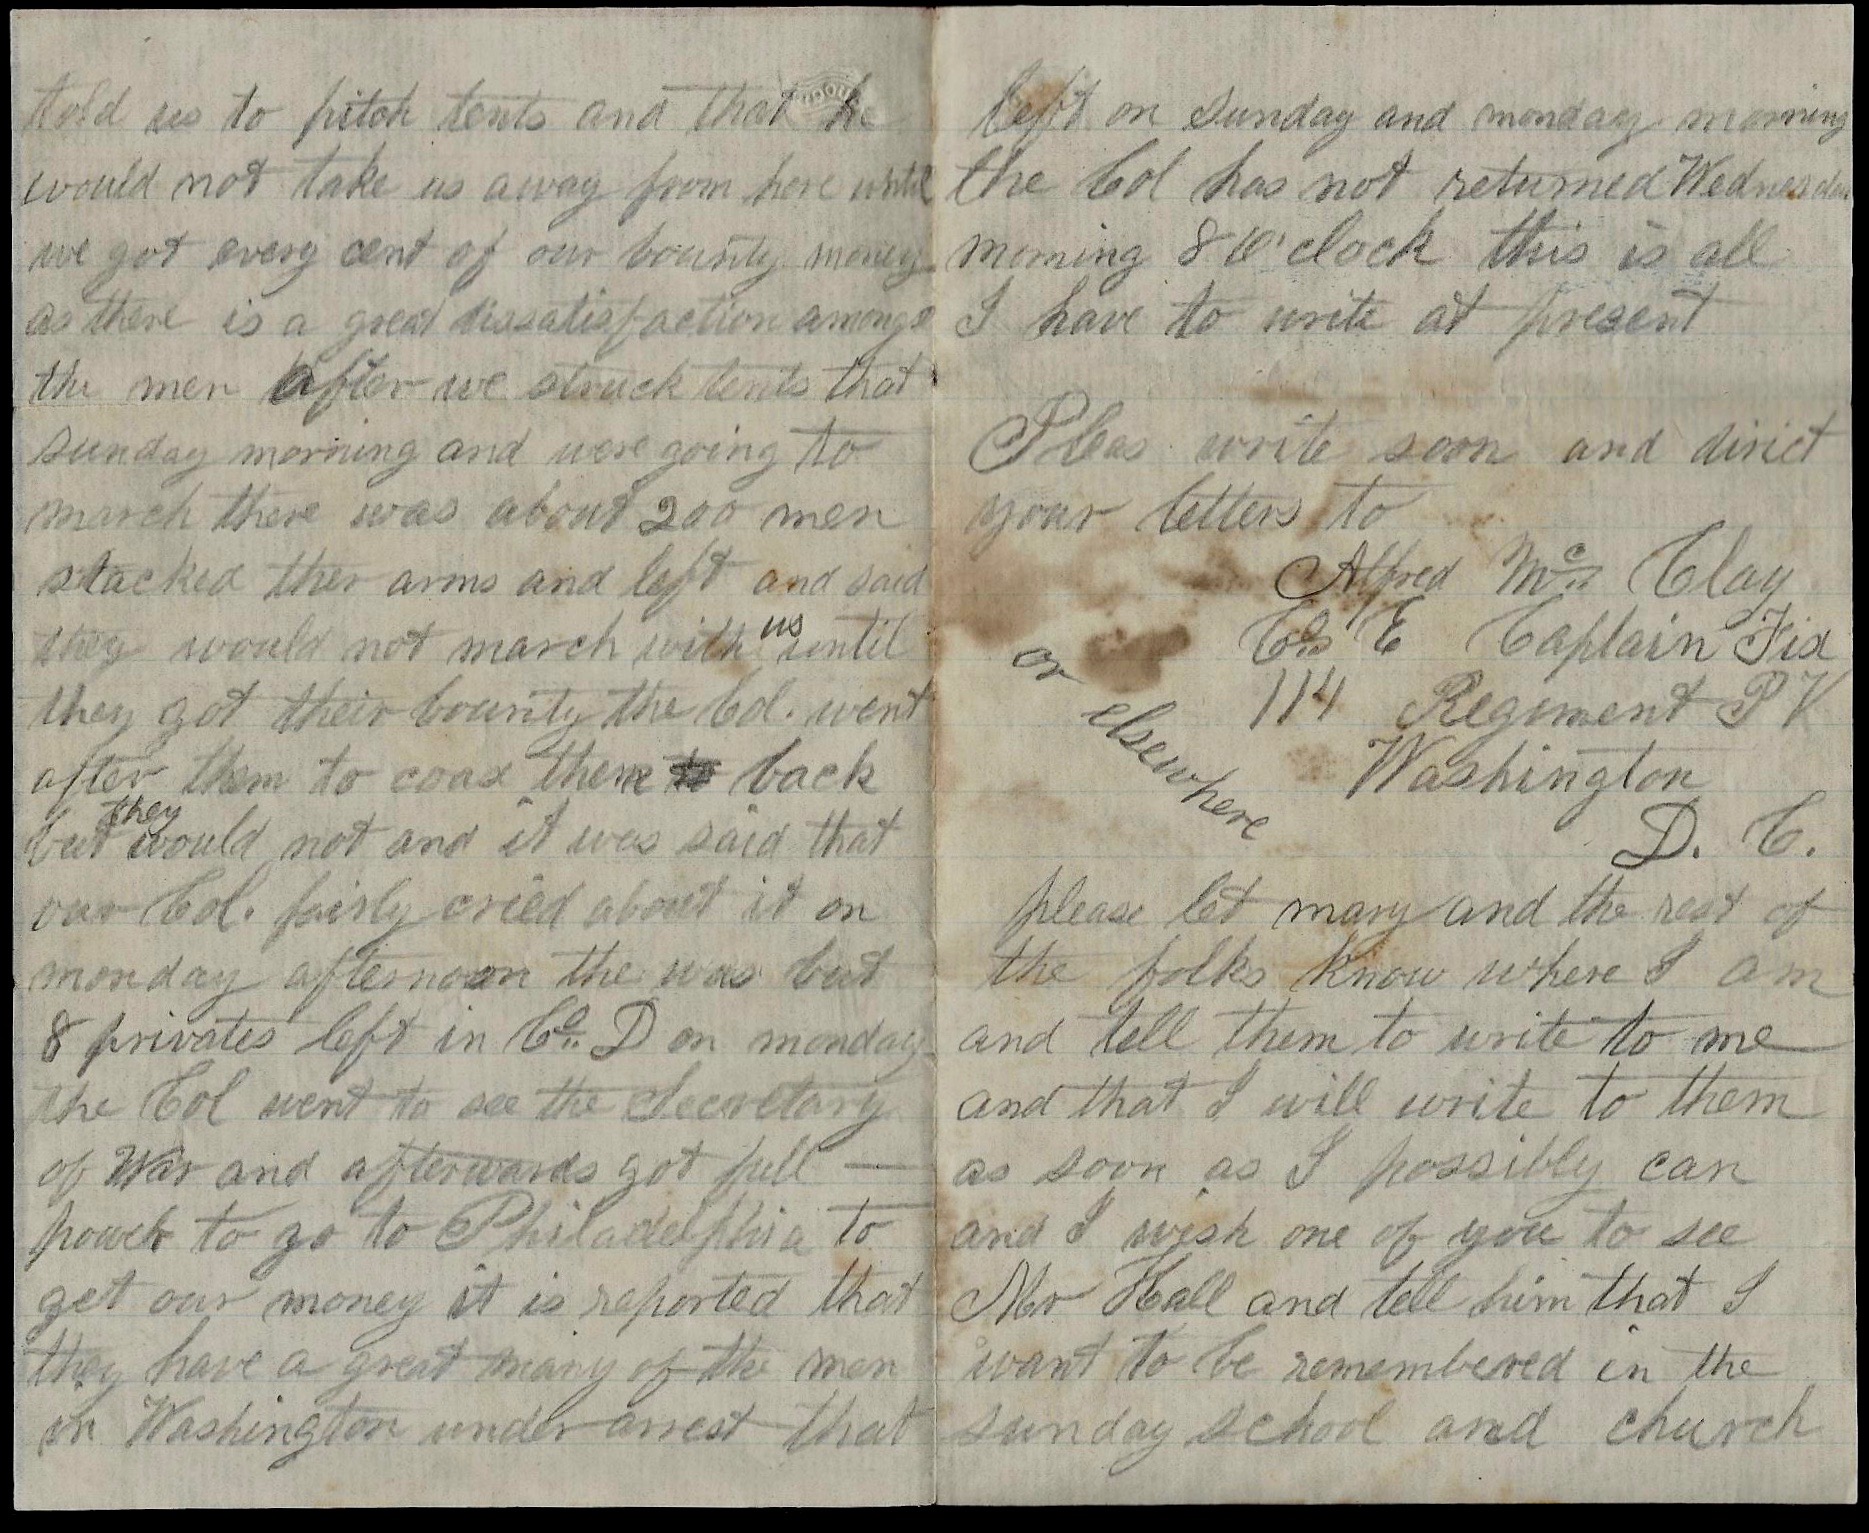 told us to pitch tents and that he
would not take us away from here until
we got every cent of our bounty money
as there is a great dissatisfaction amongs
the men after we struck tents that
sunday morning and were going to
march there was about 200 men
stacked ther arms and left and said
they would not march with us until
they got their bounty the Col. went
after them to coax them to back
but they would not and it was said that
our Col. fairly cried about it on
monday afternoon the was but
8 privates left in Co. D on monday
the Col went to see the Secretary
of War and afterwards got full —
power to go to Philadelphia to
get our money it is reported that
they have a great many of the men
in Washington under arrest that
left on Sunday and monday morning
the Col has not returned Wednesday
morning 8 O'clock this is all
I have to write at present
Pleas write soon and dirict
your letters to
Alfred Mc Clay
Co E Captain Fix
114 Regiment P V
Washington
D. C.
or elsewhere
please let mary and the rest of
the folks know where I am
and tell them to write to me
and that I will write to them
as soon as I possibly can
and I wish one of you to see
Mr Hall and tell him that I
want to be remembered in the
sunday school and church